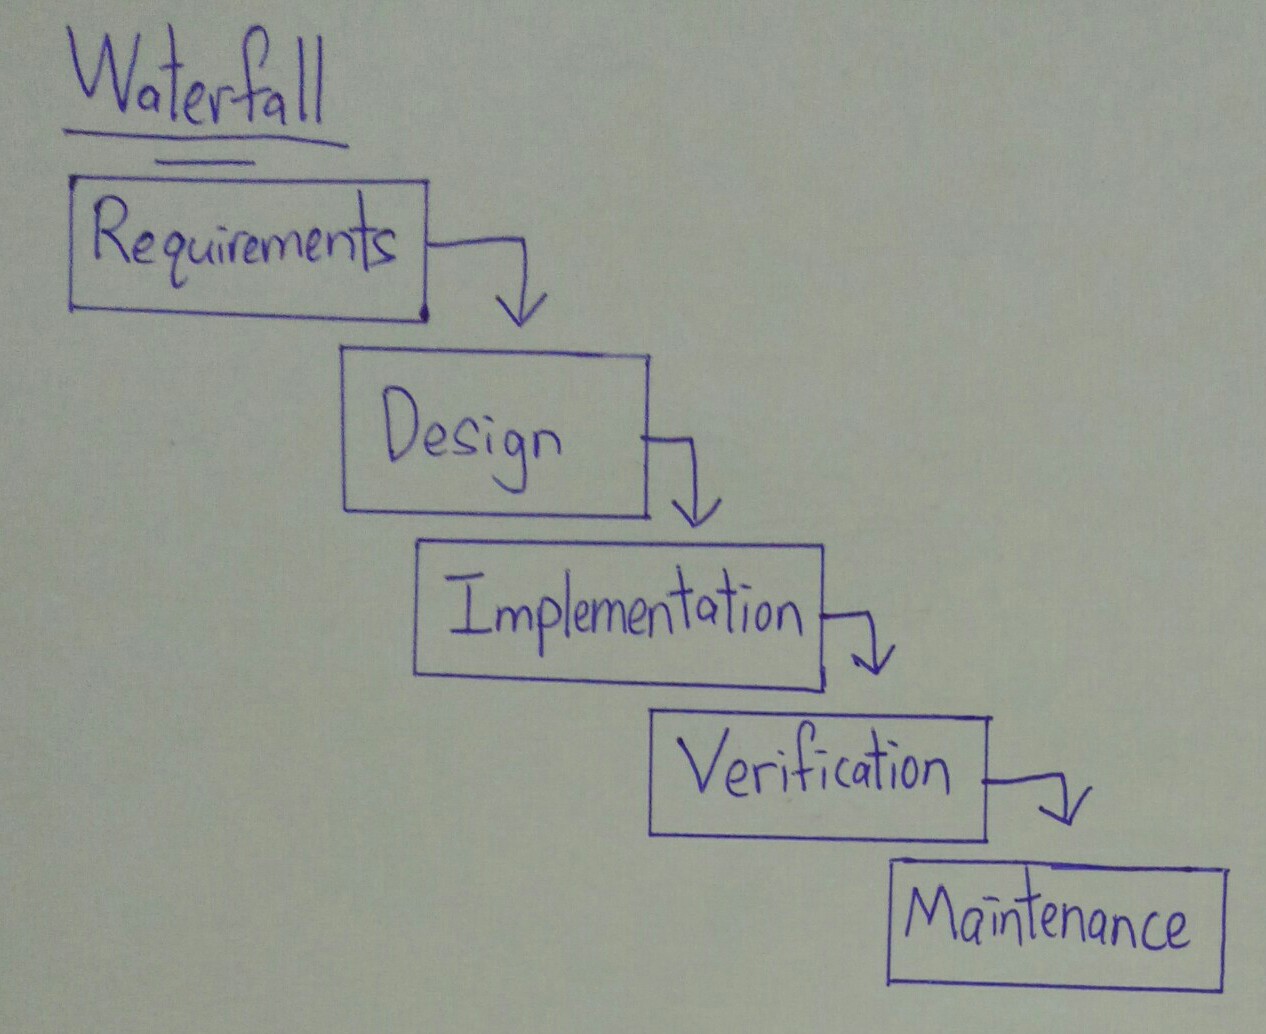 Waterfall
Requirements
Design
Implementation
Verification
Maintenance